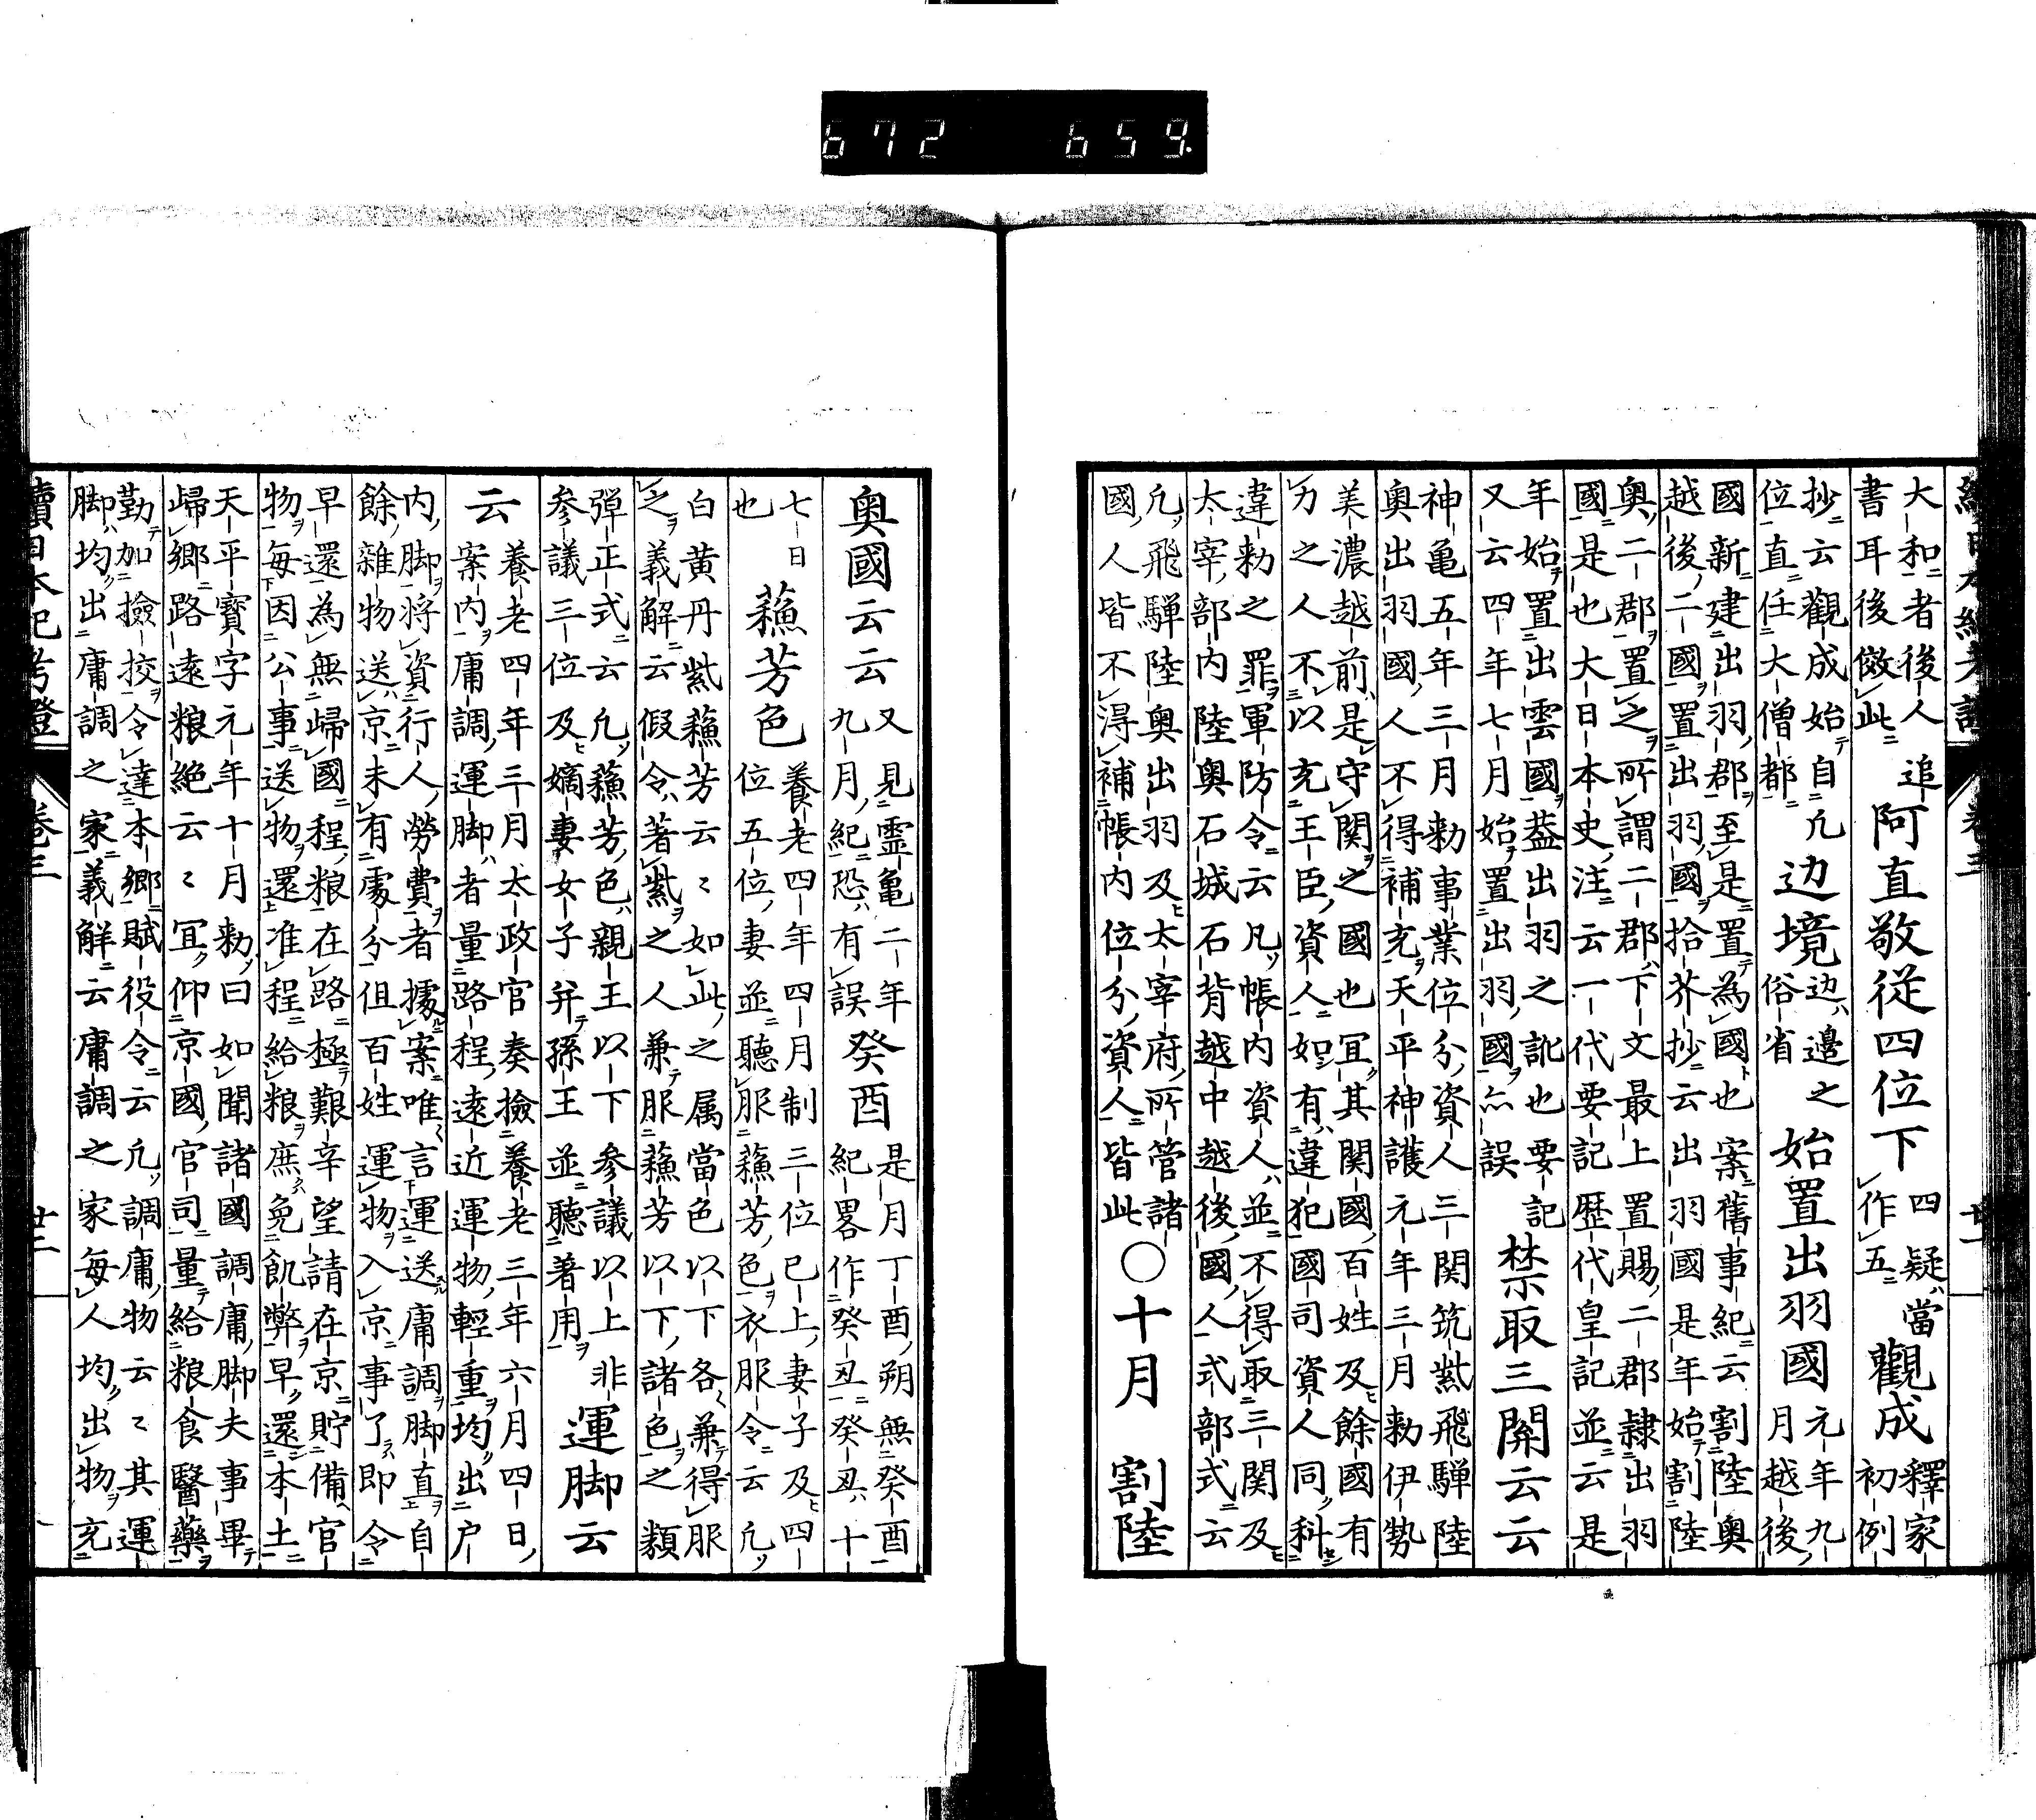 續日本紀考證
卷三
廿一
大和者後人追
書耳後倣此
阿直敬從四位下
四疑當
作五
觀成
釋家
初例
抄云觀成始自凢
位直任大僧都
边境
边邊之
俗省
始置出羽國
元年九
月越後
國新建出羽郡至是置為國也案舊事紀云割陸奥
越後二國置出羽國拾芥抄云出羽國是年始割陸
奥二郡置之所謂二郡下文最上置賜二郡隷出羽
國是也大日本史注云一代要記歴代皇記並云是
年始置出雲國葢出羽之訛也要記
又云四年七月始置出羽國亦誤
禁取三關云云
神亀五年三月勅事業位分資人三関筑紫飛騨陸
奥出羽國人不得補充天平神護元年三月勅伊勢
美濃越前是守関之國也冝其関國百姓及餘國有
力之人不以充王臣資人如有違犯國司資人同科
違勅之罪軍防令云凡帳内資人並不得取三関及
太宰部内陸奥石城石背越中越後國人式部式云
凢飛騨陸奥出羽及太宰府所管諸
國人皆不得補帳内位分資人皆此
○十月 割陸
奥國云云
又見霊亀二年
九月紀恐有誤
癸酉
是月丁酉朔無癸酉
紀畧作癸丑癸丑十
七日
也
蘓芳色
養老四年四月制三位已上妻子及四
位五位妻並聽服蘓芳色衣服令云凢
白黄丹紫蘓芳云〻如此之属當色以下各兼得服
之義解云假令著紫之人兼服蘓芳以下諸色之類
弾正式云凢蘓芳色親王以下参議以上非
参議三位及嫡妻女子并孫王並聽著用
運脚云
云
養老四年三月太政官奏撿養老三年六月四日
案内庸調運脚者量路程遠近運物輕重均出户
内脚將資行人勞費者據案唯言運送庸調脚直自
餘雜物送京未有處分但百姓運物入京事了即令
早還為無歸國程粮在路極艱辛望請在京貯備官
物毎因公事送物還准程給粮庶免飢弊早還本土
天平寶字元年十月勅曰如聞諸國調庸脚夫事畢
歸郷路遠粮絶云〻冝仰京國官司量給粮食醫藥
勤加撿挍令達本郷賦役令云凢調庸物云〻其運
脚均出庸調之家義解云庸調之家毎人均出物充
續日本紀考證
卷三
廿二